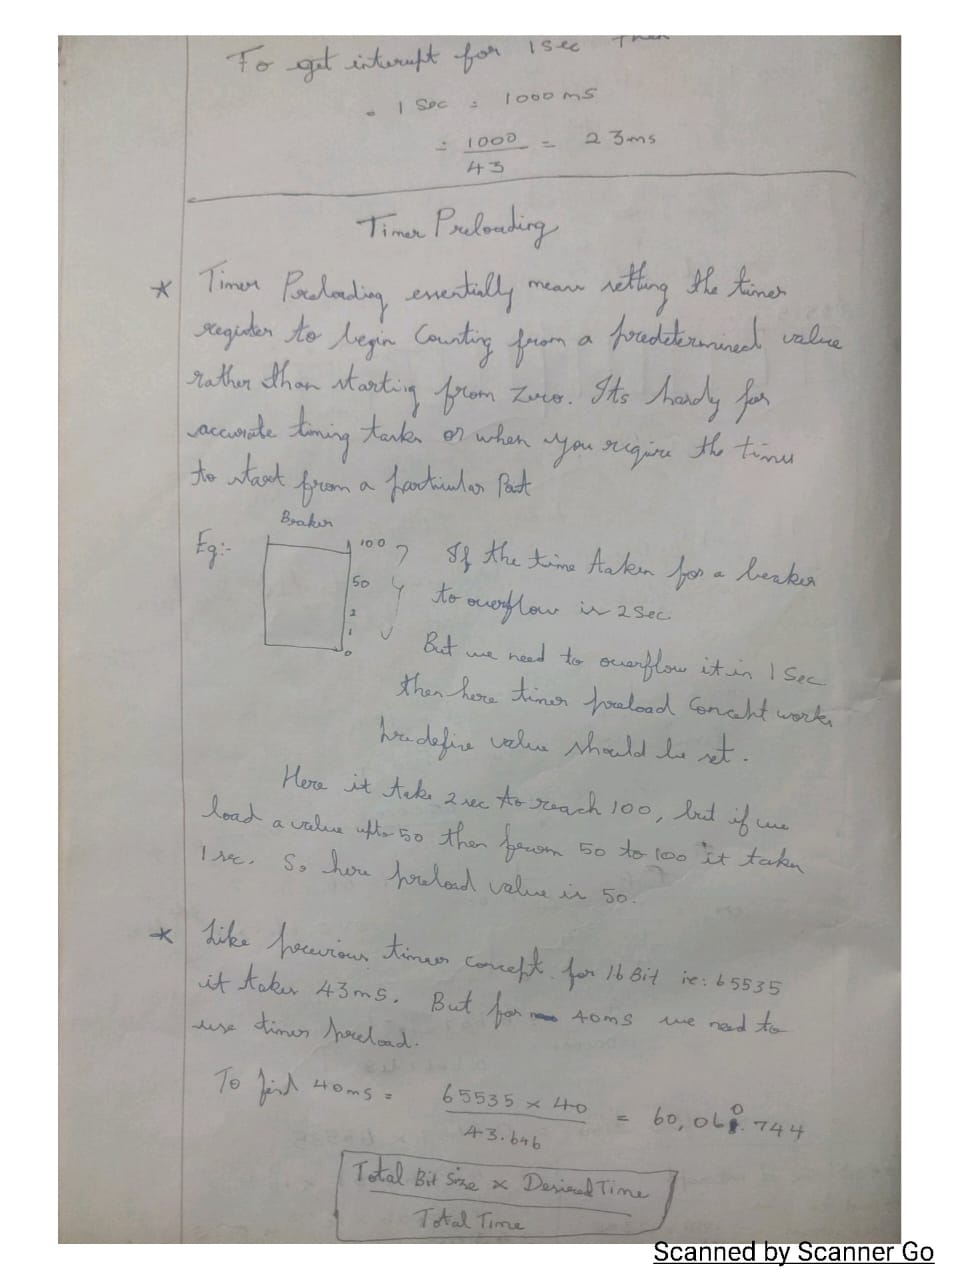 To get interupt for 1 sec then
= 1 Sec = 1000 ms
= 1000/43 = 23ms
Timer Preloading
* Timer Preloading essentially means setting the timer
register to begin Counting from a predetermined value
rather than starting from zero. Its handy for
accurate timing tasks or when you require the timer
to start from a particular Point
Beaker
Eg:-
100
50
2
1
0
If the time taken for a beaker
to overflow is 2 sec.
But we need to overflow it in 1 Sec
then here timer preload Concept works
predefine value should be set.
Here it take 2 sec to reach 100, but if we
load a value upto 50 then from 50 to 100 it takes
1 sec. So here preload value is 50.
* Like previous timer concept for 16 Bit ie: 65535
it takes 43ms. But for 40ms we need to
use timer preload.
To find 40ms = 65535 x 40 / 43.646 = 60,060.744
Total Bit Size x Desired Time
Total Time
Scanned by Scanner Go